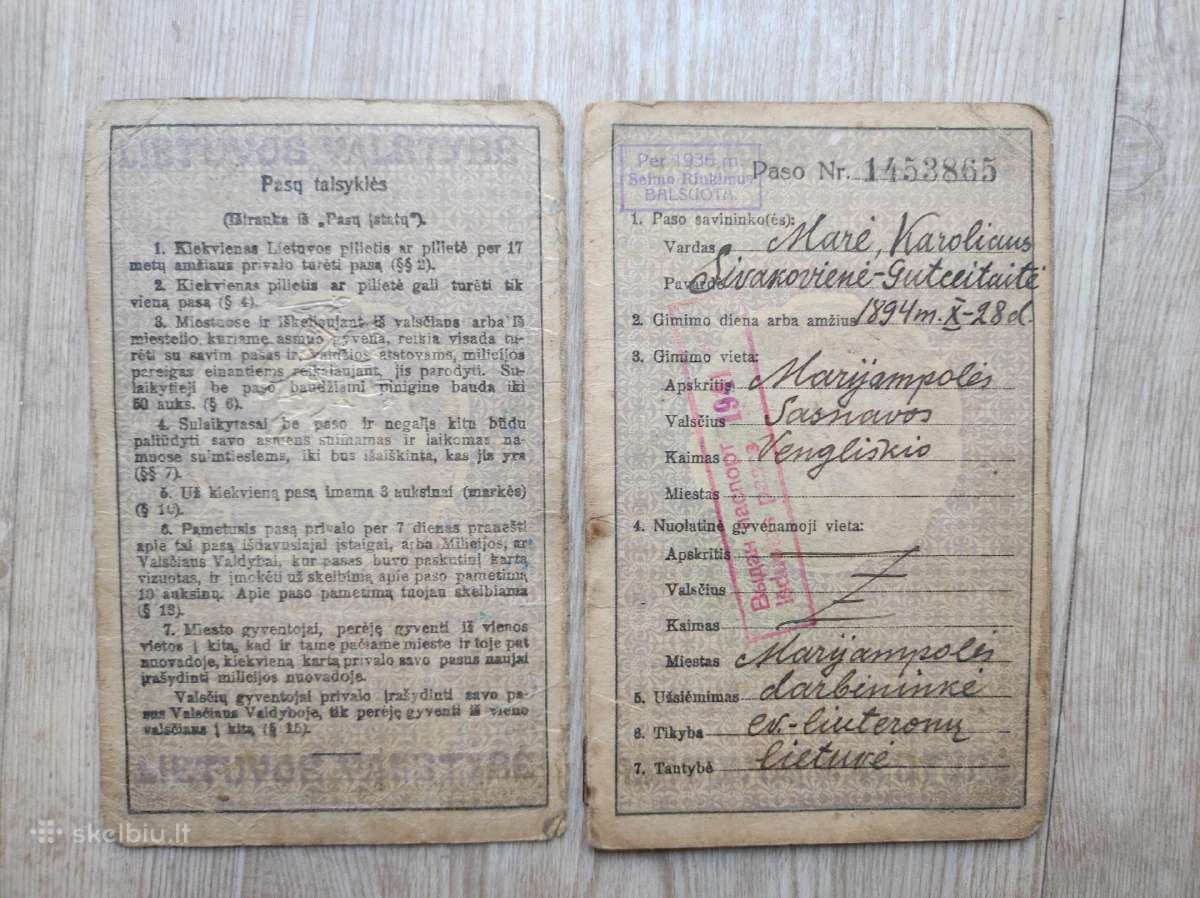 Pasų taisyklės
(Ištrauka iš „Pasų įstatų").
1. Kiekvienas Lietuvos pilietis ar pilietė per 17
metų amžiaus privalo turėti pasą (§§ 2).
2. Kiekvienas pilietis ar pilietė gali turėti tik
vieną pasą (§ 4).
3. Miestuose ir iškeliaujant iš valsčiaus arba iš
miestelio, kuriame asmuo gyvena, reikia visada tu-
rėti su savim pasas ir, valdžios atstovams, milicijos
pareigas einantiems reikalaujant, jis parodyti. Su-
laikytieji be paso baudžiami pinigine bauda iki
50 auks. (§ 6).
4. Sulaikytasai be paso ir negalįs kitu būdu
paliudyti savo asmens suimamas ir laikomas na-
muose suimtiesiems, iki bus išaiškinta, kas jis yra
(§§ 7).
5. Už kiekvieną pasą imama 3 auksinai (markės)
(§ 10).
6. Pametusis pasą privalo per 7 dienas pranešti
apie tai pasą išdavusiajai įstaigai, arba Milicijos, ar
Valsčiaus Valdybai, kur pasas buvo paskutinį kartą
vizuotas, ir įmokėti už skelbimą apie paso pametimą
10 auksinų. Apie paso pametimą tuojau skelbiama
(§ 13).
7. Miesto gyventojai, perėję gyventi iš vienos
vietos į kitą, kad ir tame pačiame mieste ir toje pat
nuovadoje, kiekvieną kartą privalo savo pasus naujai
įrašydinti milicijos nuovadoje.
Valsčių gyventojai privalo įrašydinti savo pa-
sus Valsčiaus Valdyboje, tik perėję gyventi iš vieno
valsčiaus į kitą (§ 15).
skelbiu.lt
Per 1936 m.
Seimo Rinkimus
BALSUOTA
Paso Nr. 1453865
1. Paso savininko(ės):
Vardas Marė, Karoliaus
Pavardė Sivakovienė-Gutceitaitė
2. Gimimo diena arba amžius 1894 m. X-28 d.
3. Gimimo vieta:
Apskritis Marijampolės
Valsčius Sasnavos
Kaimas Vengliškio
Miestas
4. Nuolatinė gyvenamoji vieta:
Apskritis
Valsčius
Kaimas
Miestas Marijampolės
5. Užsiėmimas darbininkė
6. Tikyba ev.-liuteronų
7. Tautybė lietuvė
Выдан паспорт 1941